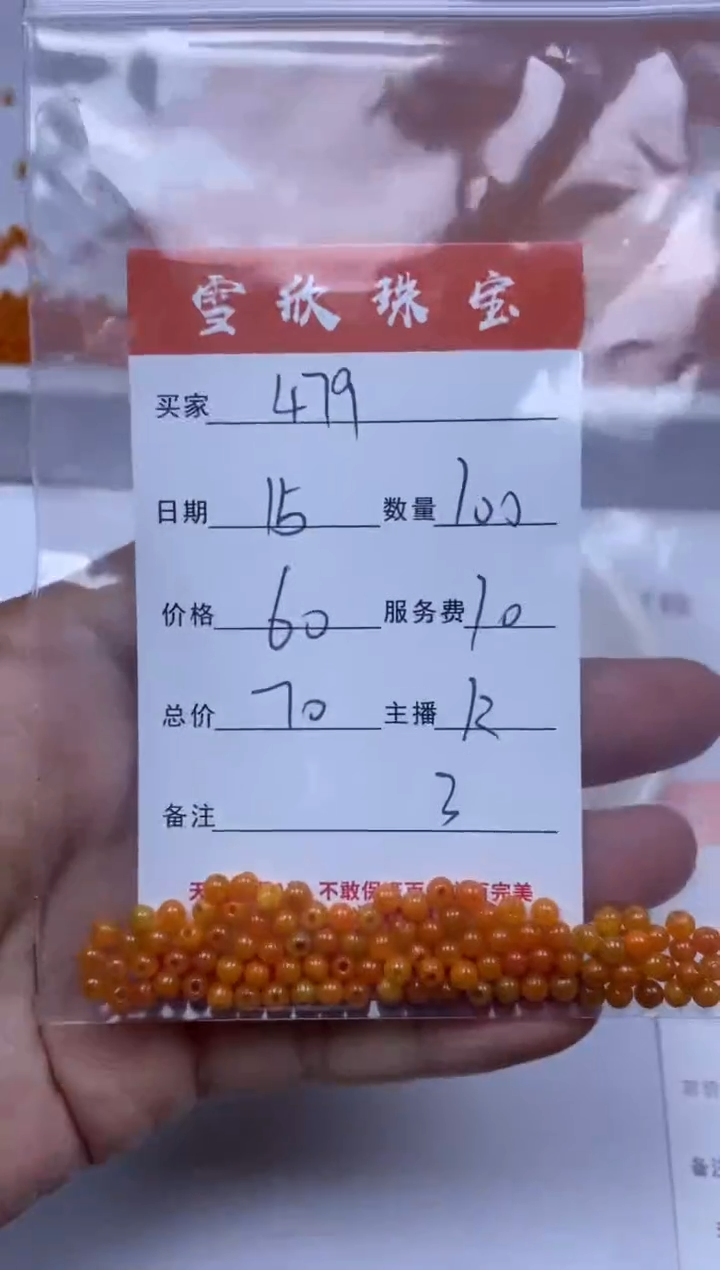 雪欣珠宝
买家 479
日期 15 数量 100
价格 60 服务费 10
总价 70 主播 12
备注 3
天 不敢保 百 百完美
备注